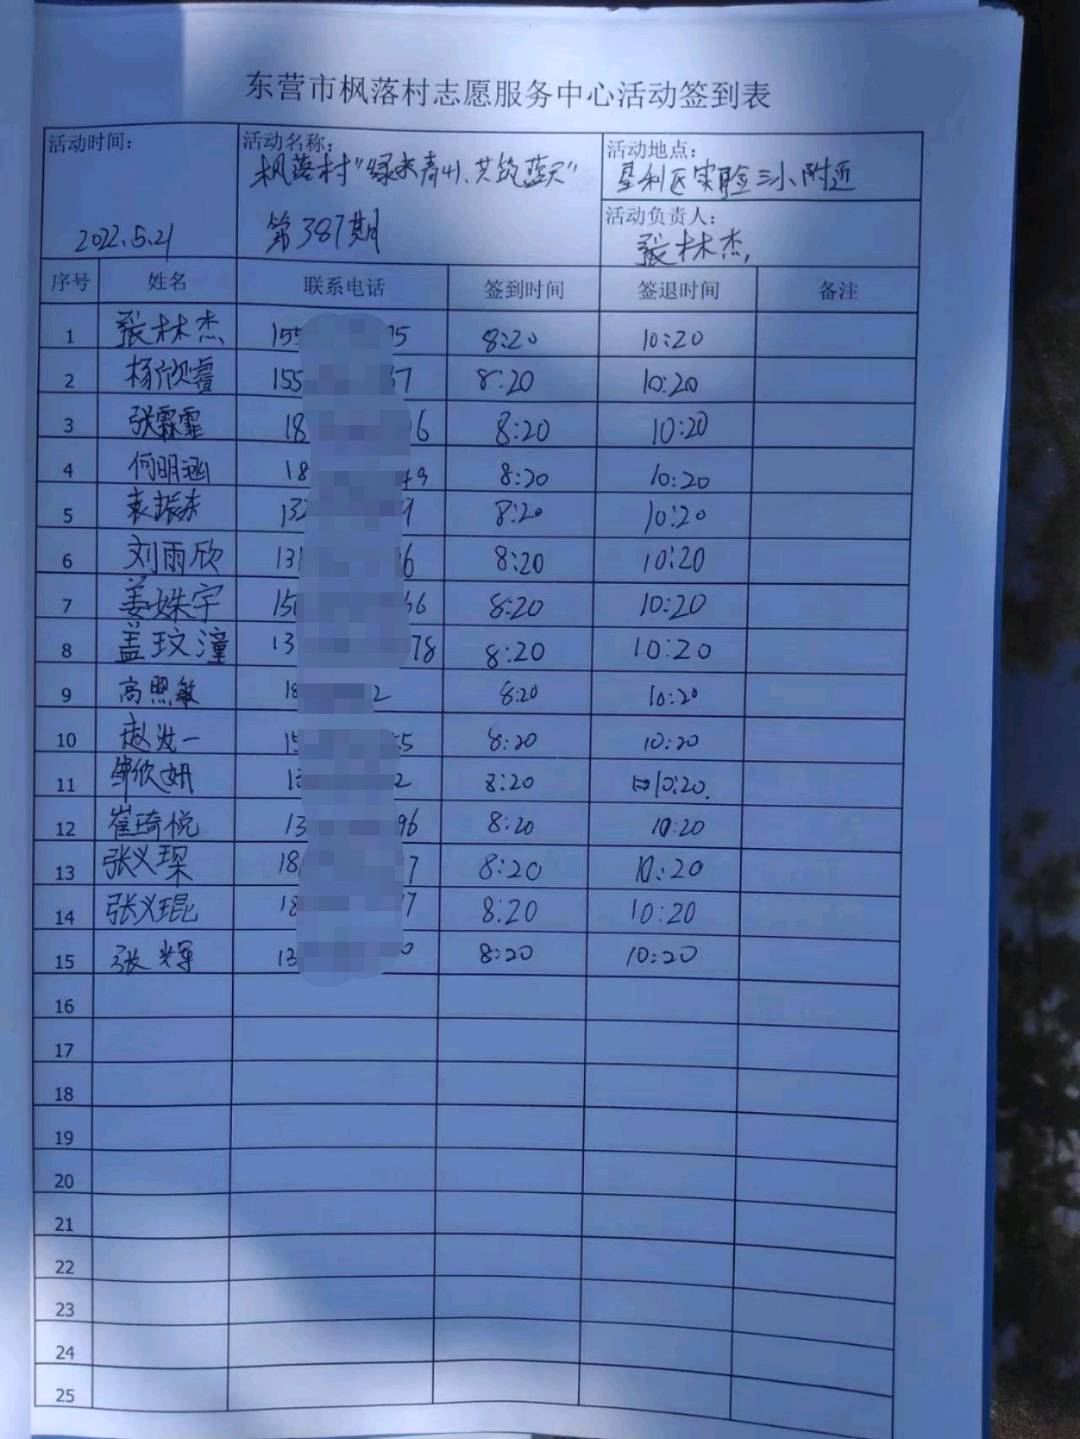 东营市枫落村志愿服务中心活动签到表
活动时间: 活动名称: 活动地点:
枫落村"绿水青山、共筑蓝天" 垦利区实验三小附近
活动负责人:
2022.5.21 第387期 张林杰
序号 姓名 联系电话 签到时间 签退时间 备注
1 张林杰 155 5 8:20 10:20
2 杨欣睿 155 7 8:20 10:20
3 张霖霏 18 6 8:20 10:20
4 何明涵 18 49 8:20 10:20
5 袁振东 132 9 8:20 10:20
6 刘雨欣 131 6 8:20 10:20
7 姜姝宇 150 66 8:20 10:20
8 盖玟潼 13 78 8:20 10:20
9 高照敏 18 2 8:20 10:20
10 赵汝一 15 55 8:20 10:20
11 邹欣妍 13 2 8:20 10:20
12 崔琦悦 13 96 8:20 10:20
13 张义琛 18 7 8:20 10:20
14 张义琨 18 7 8:20 10:20
15 张辉 13 0 8:20 10:20
16
17
18
19
20
21
22
23
24
25